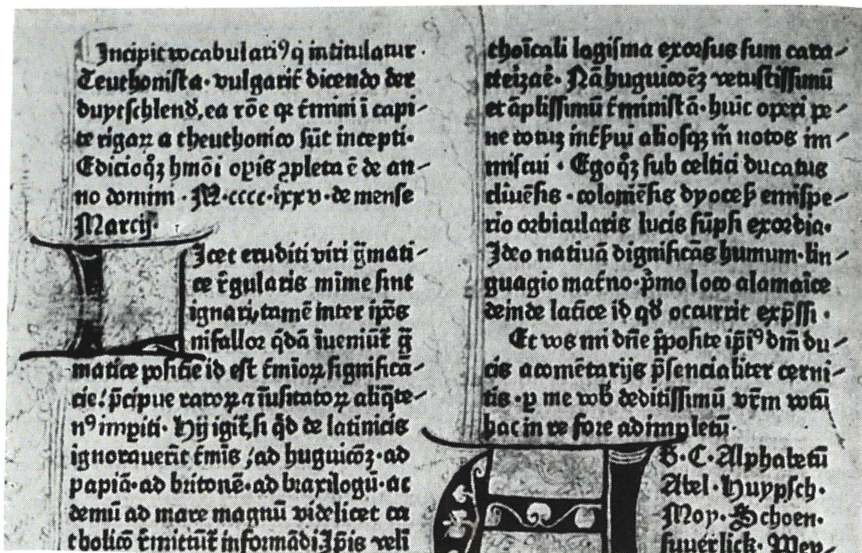 Incipit vocabulariꝰ q̇ intitulatur·
Teuthonista· vulgarit̄ dicendo der
duytschlend᷒, ea rōe qꝛ t̄mini ī capi-
te rigaꝝ a theuthonico sūt incepti·
Edicioqꝫ hmōi opis ꝯpleta ē de an-
no domini · M·cccc·lxxv·de mense
Marcij·
LIcet eruditi viri ḡmati-
ce r̄gularis mīme sint
ignari, tamē inter ipōs
nisallor q̇dā īueniūt̄ ḡ
matice positie id est t̄mioꝝ significā-
cie! p̄cipue raroꝝ ⁊ īusitatoꝝ aliq̄te-
nꝰ impiti· Hij igit̄, si q̇d de latinicis
ignorauer̄it t̄mis, ad huguicōꝫ·ad
papiā·ad britonē·ad braxilogū·ac
demū ad mare magnū videlicet ca
tholicō t̄mittūt̄ informādi. Ip̄is veli
thoīcali logisma exorsus sum cata-
cteizaē· Nā huguicōeꝫ vetustissimū
et āplissimū t̄ministā·huic operi pe-
ne totuꝫ int̄ ꝓui aliosqꝫ m̄ notos im-
miscui · Egoqꝫ sub celtici ducatus
cliuēsis·coloniēsis dyoceꝭ emispe-
rio orbicularis lucis sūpsi exordia·
Ideo natiuā dignificās humum·lin-
guagio mat̄no·p̄mo loco alamaīce
deinde latīce id qḋ occurrit exp̄ssi·
Et vos mi dn̄e p̄posite ip̄iꝰ dn̄i du-
cis a comētarijs p̄sencialiter cerni-
tis·ꝑ me vob̄ deditissimū vr̄m votū
hac in re fore adimpletū·
A B·C·Alphabetū
Abel·Huypsch·
Moy·Schoen·
Suuerlick·Mey-